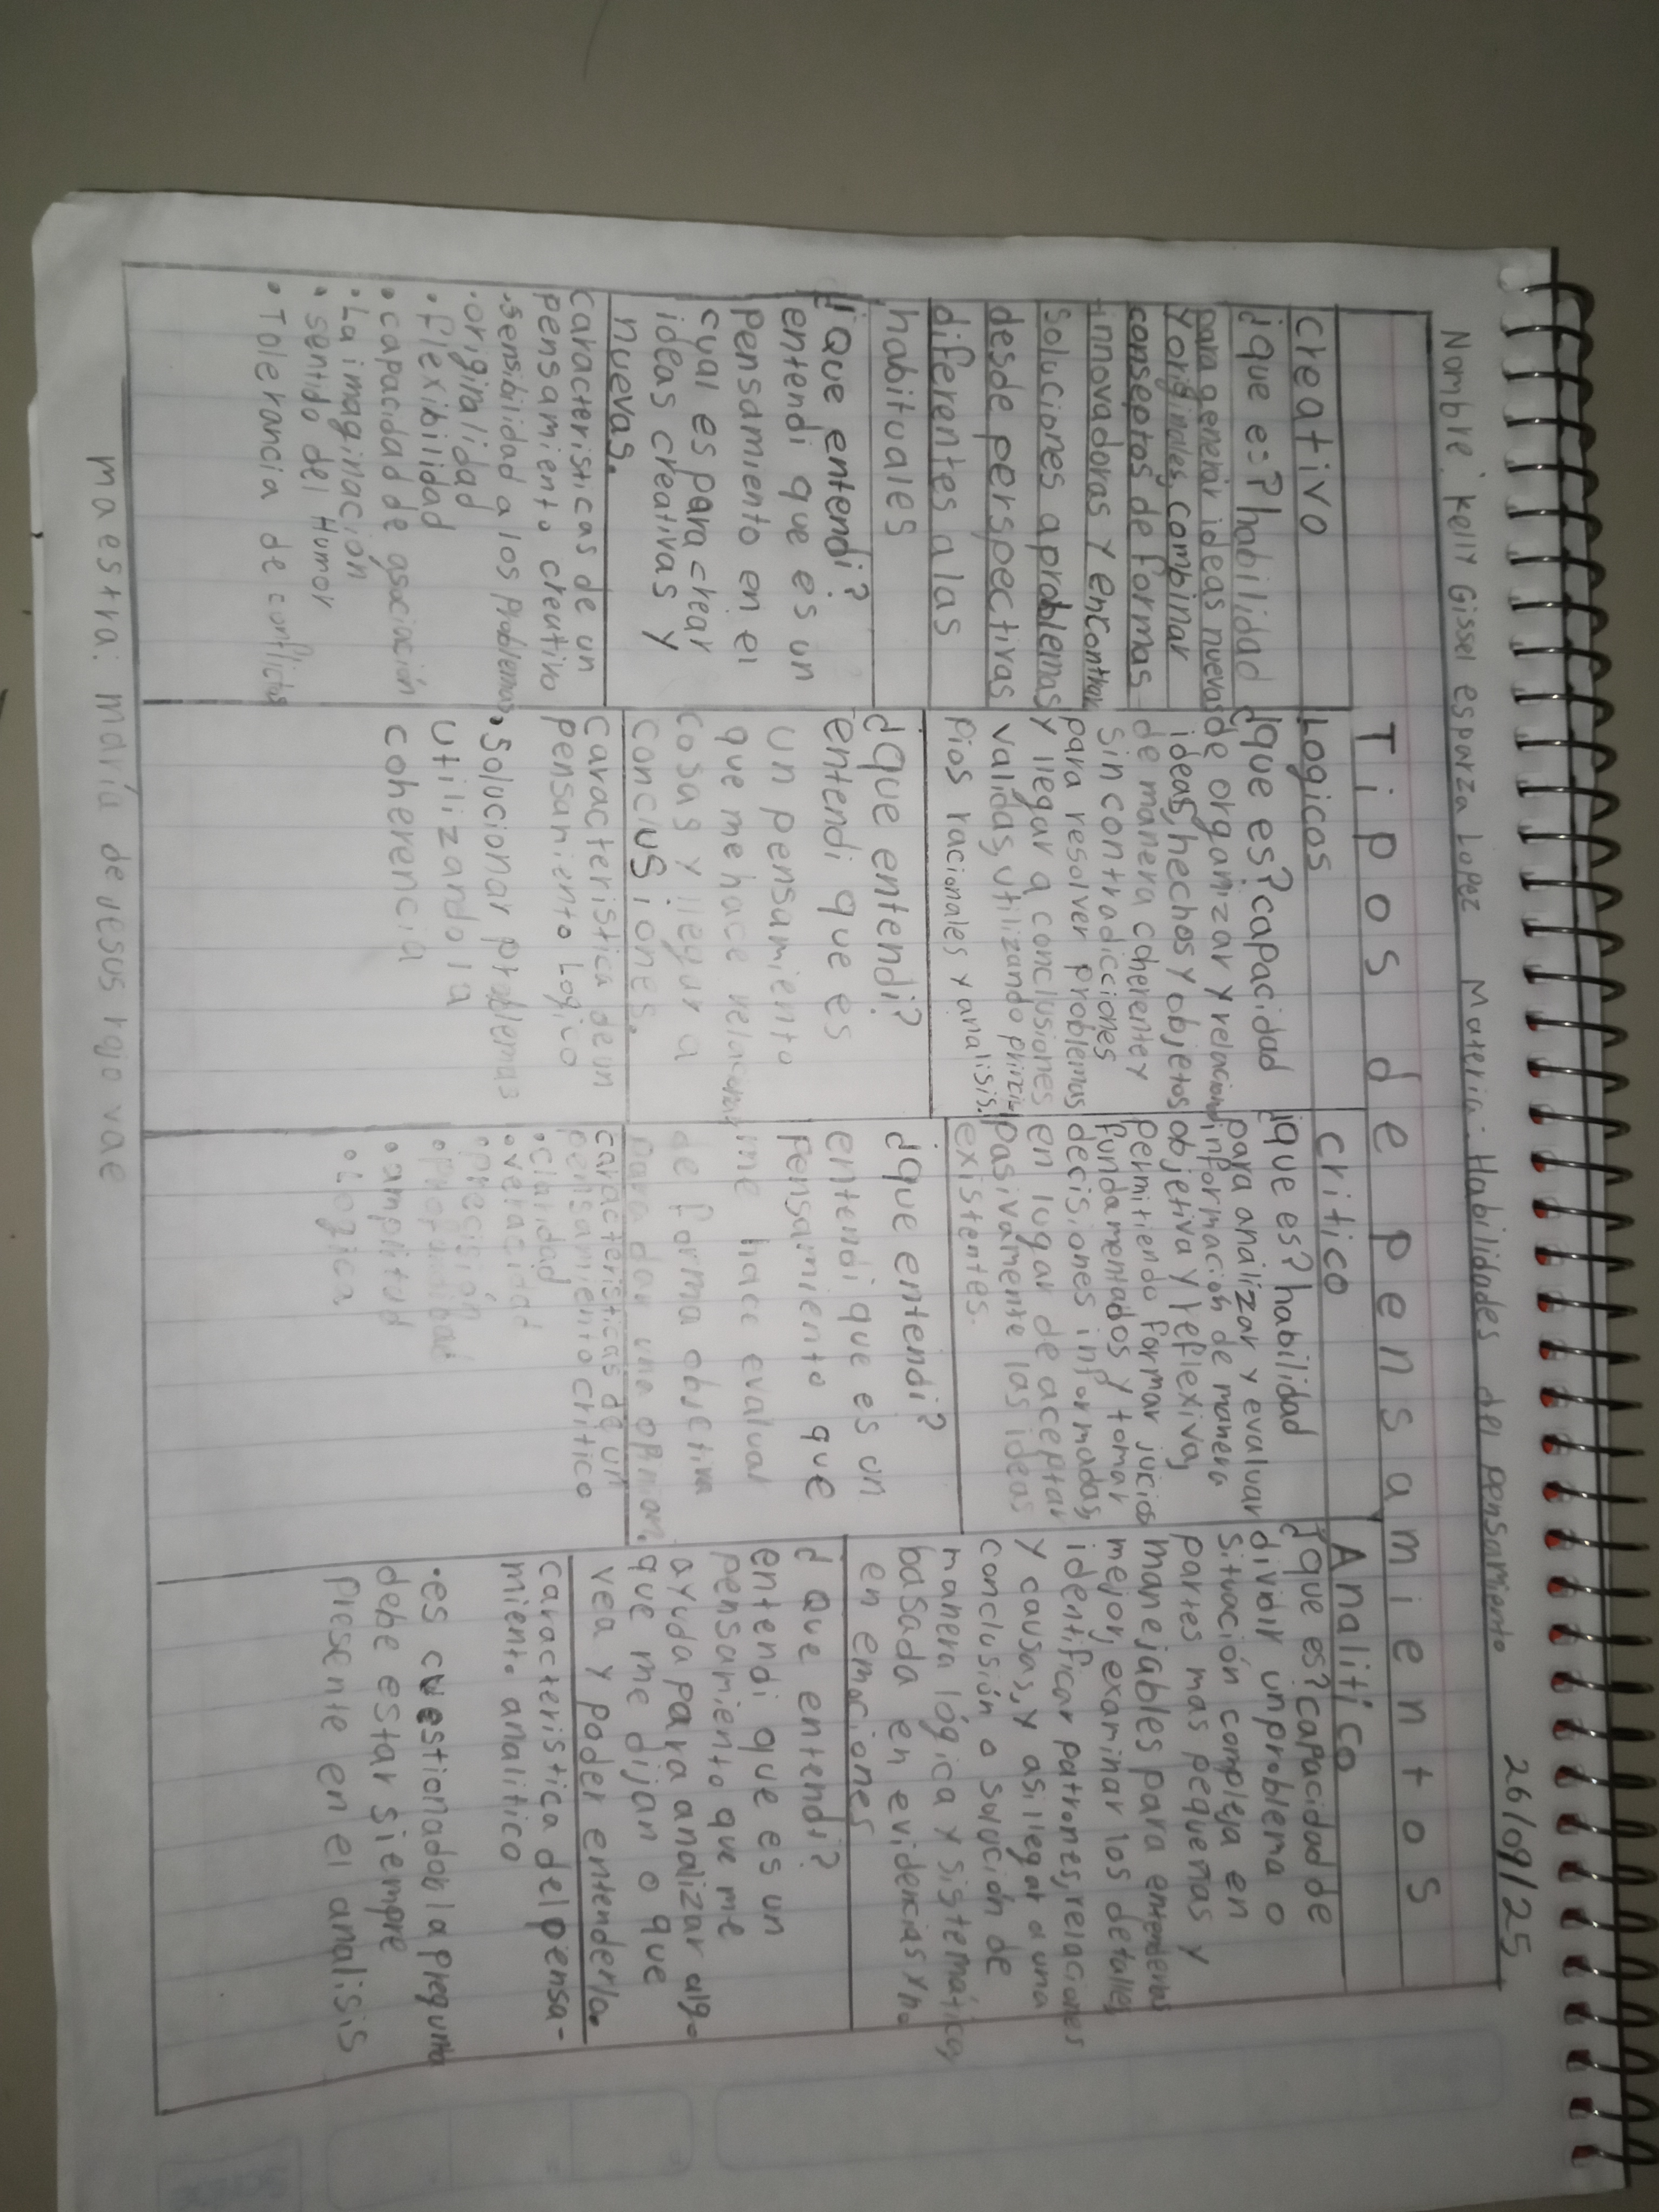 26/09/25
Nombre: Kelly Gissel esparza Lopez Materia: Habilidades del pensamiento
Tipos de pensamientos
creativo
¿que es? habilidad
para generar ideas nuevas
y originales, combinar
conseptos de formas
innovadoras y encontrar
soluciones a problemas
desde perspectivas
diferentes a las
habituales
¿Que entendi?
entendi que es un
pensamiento en el
cual es para crear
ideas creativas y
nuevas.
caracteristicas de un
pensamiento creativo
•sensibilidad a los problemas
•originalidad
•flexibilidad
•capacidad de asociación
•La imaginación
•sentido del Humor
•Tolerancia de conflictos
Logicos
¿que es? capacidad
de organizar y relacionar
ideas, hechos y objetos
de manera coherente y
sin contradicciones
para resolver problemas
y llegar a conclusiones
validas, utilizando princi-
pios racionales y analisis.
¿que entendi?
entendi que es
un pensamiento
que me hace relacionar
cosas y llegar a
conclusiones.
caracteristica de un
pensamiento Logico
•Solucionar problemas
utilizando la
coherencia
critico
¿que es? habilidad
para analizar y evaluar
información de manera
objetiva y reflexiva,
permitiendo formar juicios
fundamentados y tomar
decisiones informadas,
en lugar de aceptar
pasivamente las ideas
existentes.
¿que entendi?
entendi que es un
pensamiento que
me hace evaluar
de forma objetiva
para dar una opinion.
caracteristicas de un
pensamiento critico
•claridad
•veracidad
•precisión
•profundidad
•amplitud
•Logica
Analitíco
¿que es? capacidad de
dividir un problema o
situación compleja en
partes mas pequeñas y
manejables para entenderlas
mejor, examinar los detalles,
identificar patrones, relaciones
y causas, y asi llegar a una
conclusión o solución de
manera lógica y sistemática,
basada en evidencias y no
en emociones
¿Que entendi?
entendi que es un
pensamiento que me
ayuda para analizar algo
que me dijan o que
vea y poder entenderlo.
caracteristica del pensa-
miento analitico
•es cuestionador la pregunta
debe estar siempre
presente en el analisis
maestra: maría de jesus rojo vae